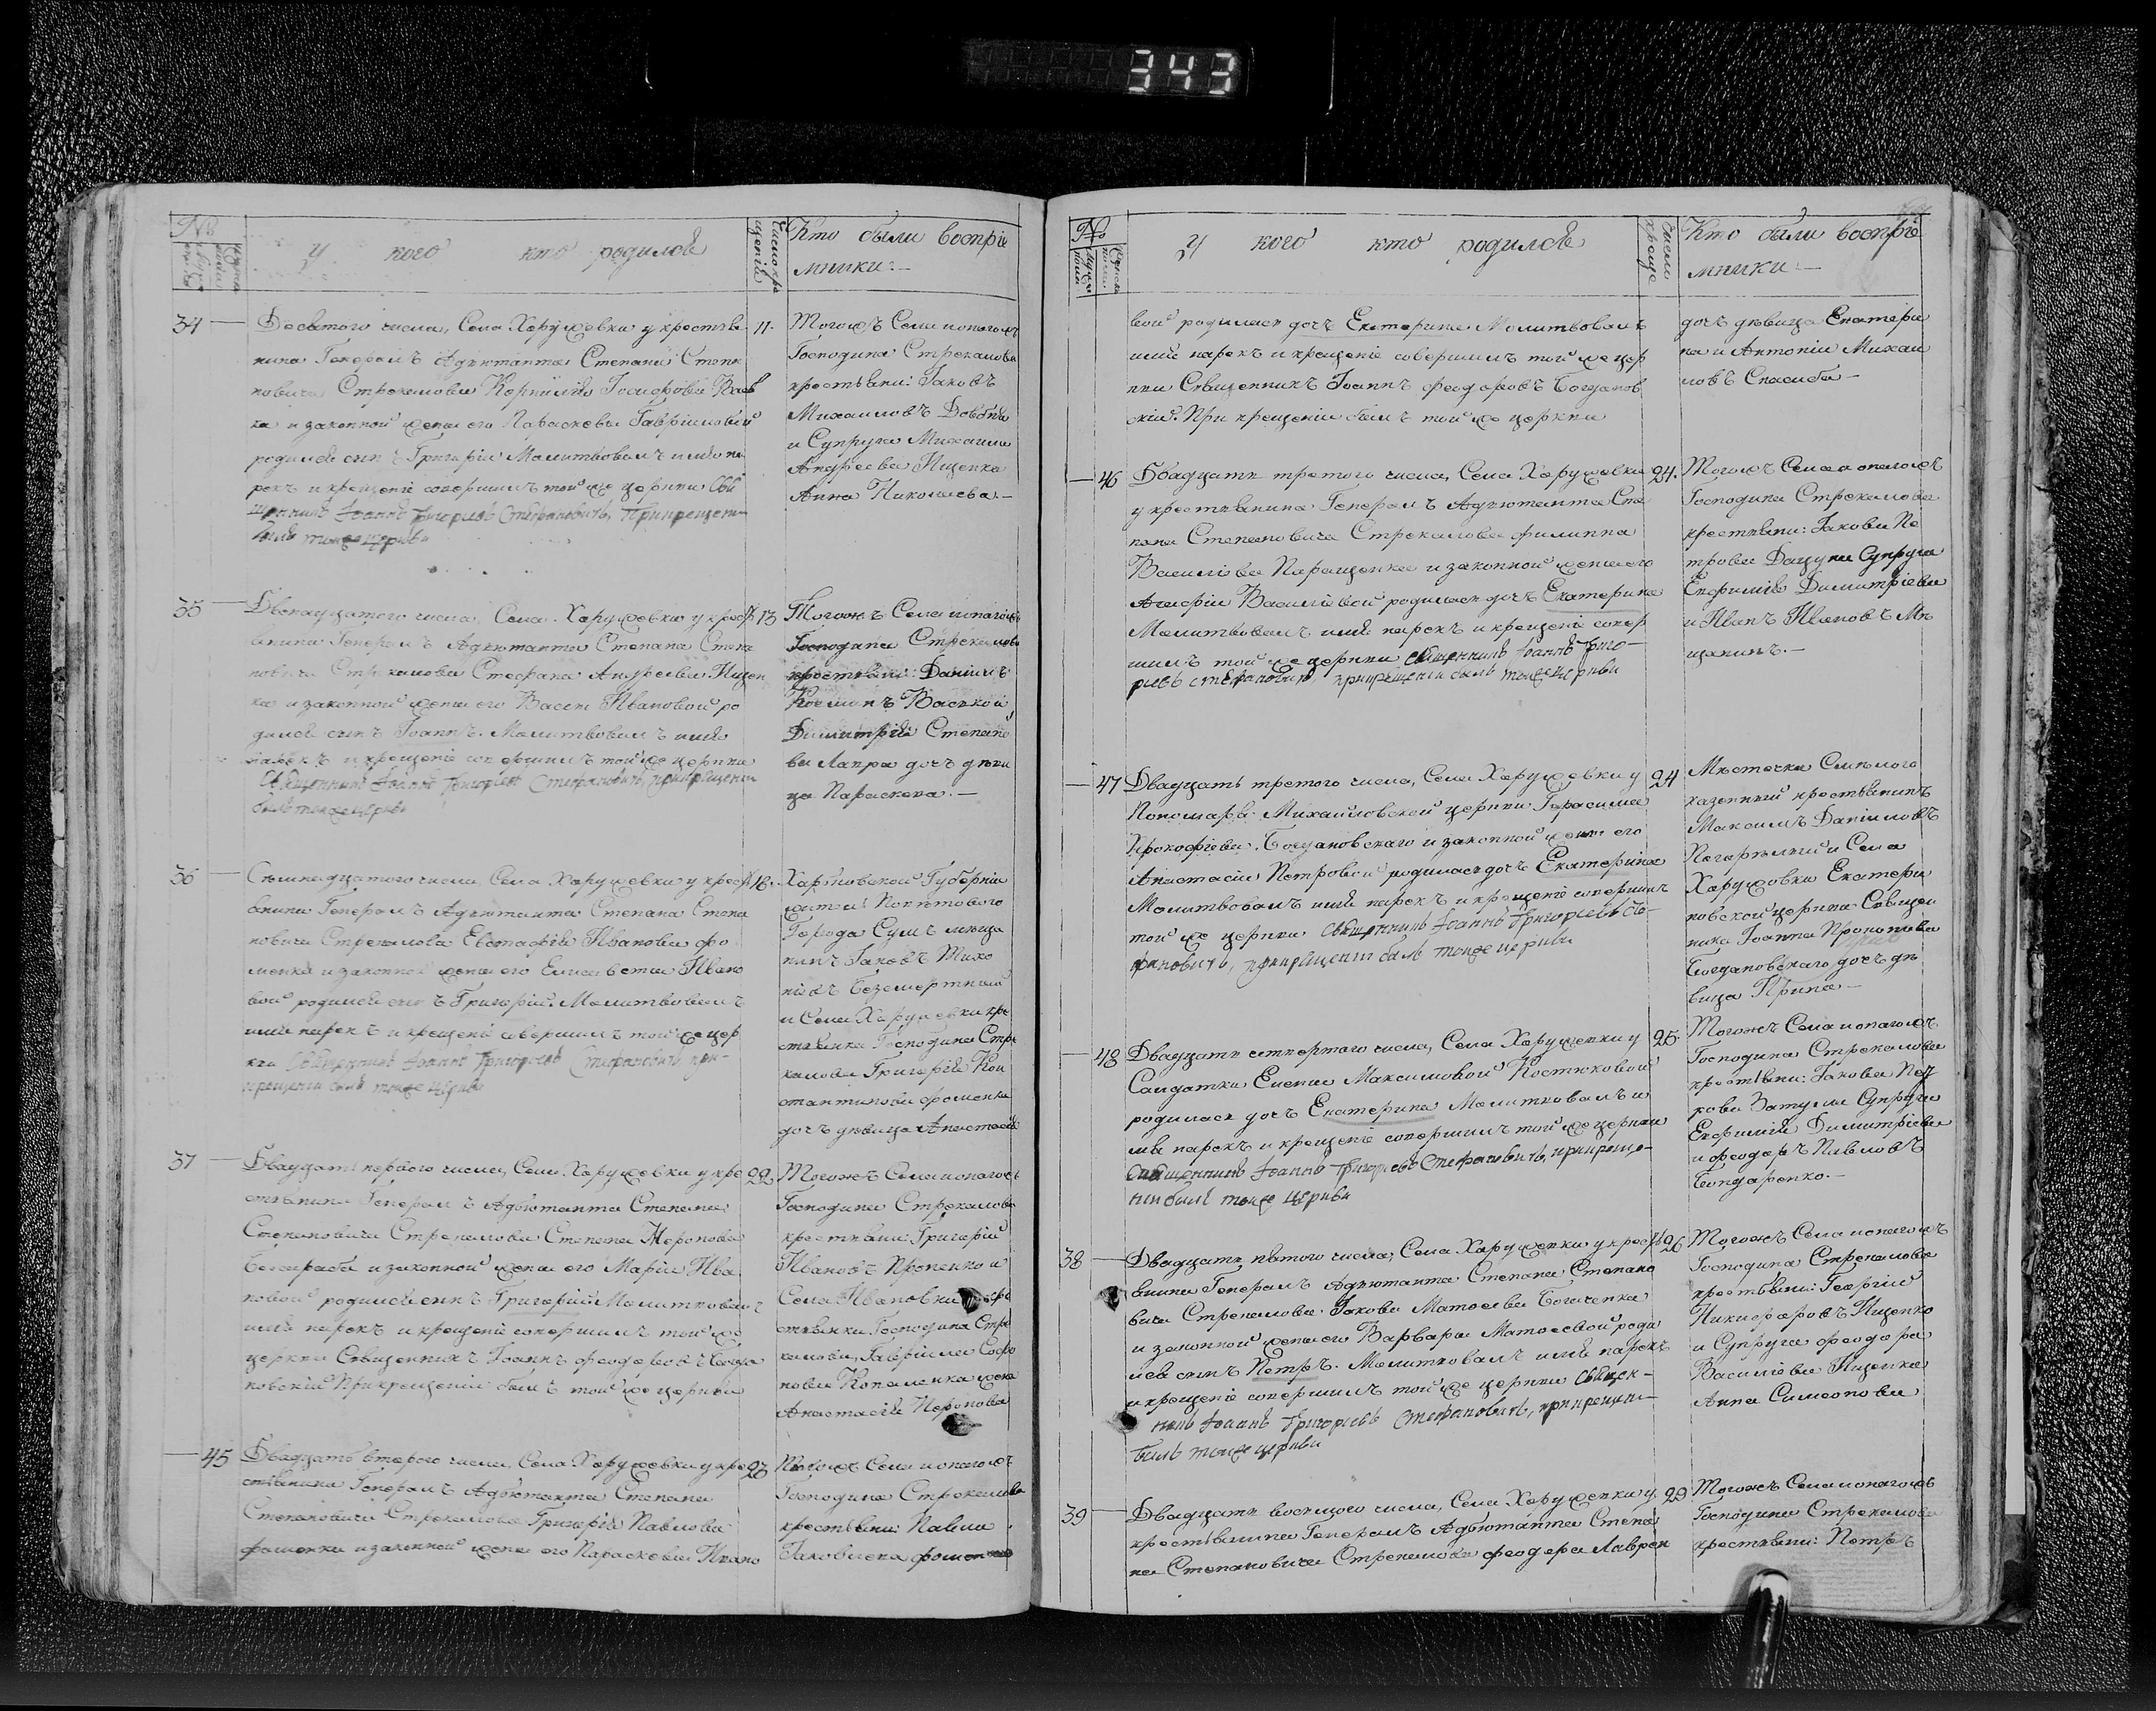 343
№
У кого кто родился
Число кре
щенiя
Кто были воспрiе
мники:—
34 Десятого числа, Села Харужевки у крестья
нина Генералъ Адъютанта Степана Степа
новича Стрекалова Корнилiя Iосифова
ка и законной жены его Параскевы Гаврiиловой
родился сынъ Григорiй Молитвовалъ имя на
рекъ и крещенiе совершилъ той же церкви Свя
щенникъ Iоаннъ Григорiевъ Стефановичъ, При крещенiи
былъ тояже церкви
11.
Тогожъ Села и оногожъ
Господина Стрекалова
крестьяни: Iаковъ
Михаиловъ
и Супруга Михаила
Андреева Ищенка
Анна Николаева.—
35 Двенадцатого числа, Села Харужевки у крест
янина Генералъ Адъютанта Степана Степа
новича Стрекалова Стефана Андреева Ищен
ка и законной жены его Васси Ивановой ро
дился сынъ Iоаннъ. Молитвовалъ имя
нарекъ и крещенiе совершилъ той же церкви
Священникъ Iоаннъ Григорiевъ Стефановичъ, при крещенiи
былъ тояже церкви
13
Тогожъ Села и оногожъ
Господина Стрекалова
крестьяни: Данiилъ
Димитрiя Степано
ва Лапра дочъ деви
ца Параскева.—
36 Семнадцатого числа, Села Харужевки у крест
янина Генералъ Адъютанта Степана Степа
новича Стрекалова Евстафiя Иванова Фо
менка и законной жены его Елисаветы Ивано
вой родился сынъ Григорiй. Молитвовалъ
имя нарекъ и крещенiе совершилъ той же цер
кви Священникъ Iоаннъ Григорiевъ Стефановичъ при
крещенiи былъ тояже церкви
18.
Харковской Губернiи
Города Сумъ меща
нинъ Iаковъ Тихо
Безсмертный
и Села Харужевки кре
стьянина Господина Стре
калова Григорiя Кон
стантинова Фоменка
дочъ девица Анастасiя
37 Двадцатъ первого числа, Села Харужевки у кре
стьянина Генералъ Адъютанта Степана
Степановича Стрекалова Степана Неронова
и законной жены его Марiи Ива
новой родился сынъ Григорiй Молитвовалъ
имя нарекъ и крещенiе совершилъ той же
церкви Священникъ Iоаннъ Феодоровъ Богда
новскiй При крещенiи былъ той же церкви
22
Тогожъ Села и оногожъ
Господина Стрекалова
крестьяни: Григорiй
Ивановъ Проненко и
Села Ивановки кре
стьянки Господина Стре
калова, Гаврiила Софо
нова Коваленка жена
Анастасiя Неронова
45 Двадцатъ второго числа, Села Харужевки у кре
стьянина Генералъ Адъютанта Степана
Степановича Стрекалова Григорiя Павлова
Фоменка и законной жены его Параскевы Ивано
23
Тогожъ Села и оногожъ
Господина Стрекалова
крестьяни: Павла
Iаковлева Фоменка
№
У кого кто родился
Число
креще
Кто были воспрiе
мники:—
вой родилася дочъ Екатерина Молитвовалъ
имя нарекъ и крещенiе совершилъ той же цер
кви Священникъ Iоаннъ Феодоровъ Богданов
скiй. При крещенiи былъ той же церкви
дочъ девица Екатери
на и Антонiй Михаи
ловъ Спасиба—
46 Двадцатъ третого числа, Села Харужевки
у крестьянина Генералъ Адъютанта Сте
пана Степановича Стрекалова Филиппа
Василiева Паращенка и законной жены его
Агафiи Василiевой родилася дочъ Екатерина
Молитвовалъ имя нарекъ и крещенiе совер
шилъ той же церкви Священникъ Iоаннъ Григо—
рiевъ Стефановичъ, при крещенiи былъ тояже церкви
24.
Тогожъ Села и оногожъ
Господина Стрекалова
крестьяни: Iакова Пе
трова Дацуна Супруга
Евфимiя Димитрiева
и Иванъ Ивановъ Мо
щанинъ.—
47 Двадцатъ третого числа, Села Харужевки у
Пономаря Михайловской церкви Герасима
Прокофiева Богдановскаго и законной жены его
Анастасiи Петровой родилася дочъ Екатерина
Молитвовалъ имя нарекъ и крещенiе совершилъ
той же церкви Священникъ Iоаннъ Григорiевъ Сте—
фановичъ, при крещенiи былъ тояже церкви
24
Местечка Смелого
казенный крестьянинъ
Максимъ Данiиловъ
Погорелый и Села
Харужовки Екатери
новской церкви Священ
ника Iоанна Прокопiева
Богдановскаго дочъ де
вица Ирина—
48 Двадцатъ четвертого числа, Села Харужевки у
Салдатки Елены Максимовой Костюковой
родилася дочъ Екатерина Молитвовалъ и
мя нарекъ и крещенiе совершилъ той же церкви
Священникъ Iоаннъ Григорiевъ Стефановичъ, при креще—
нiи былъ тояже церкви
25.
Тогожъ Села и оногожъ
Господина Стрекалова
крестьяни: Iакова Пет
рова Зацуна Супруга
Евфимiя Димитрiева
и Феодоръ Павловъ
Бондаренко.—
38 Двадцатъ пятого числа, Села Харужевки у крестъ
янина Генералъ Адъютанта Степана Степано
вича Стрекалова Iакова Матвеева Богаченка
и законной жены его Варвары Матвеевой роди
лся сынъ Петръ. Молитвовалъ имя нарекъ
и крещенiе совершилъ той же церкви Священ—
никъ Iоаннъ Григорiевъ Стефановичъ, при крещенiи
былъ тояже церкви
26
Тогожъ Села и оногожъ
Господина Стрекалова
крестьяни: Георгiй
Никифоровъ Ищенко
и Супруга Феодора
Василiева Ищенка
Анна Симеонова
39 Двадцатъ восмого числа, Села Харужевки у
крестьянина Генералъ Адъютанта Степа
на Степановича Стрекалова Феодора Лаврен
29
Тогожъ Села и оногожъ
Господина Стрекалова
крестьяни: Петръ